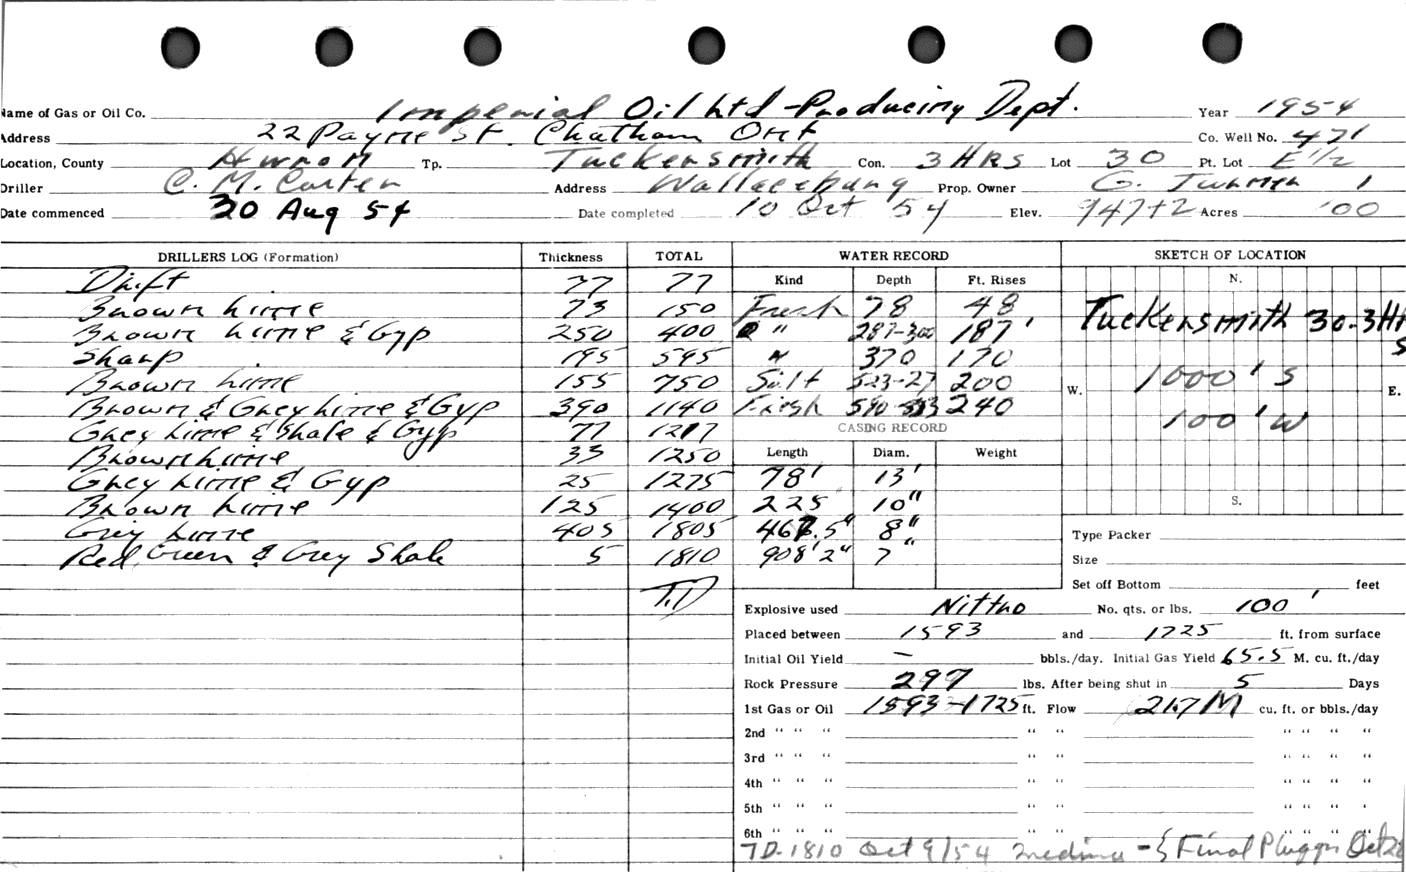 Name of Gas or Oil Co. Imperial Oil Ltd - Producing Dept. Year 1954
Address 22 Payne St. Chatham Ont Co. Well No. 471
Location, County Huron Tp. Tuckersmith Con. 3 HRS Lot 30 Pt. Lot E 1/2
Driller C. M. Carter Address Wallaceburg Prop. Owner G.
Date commenced 30 Aug 54 Date completed 10 Oct 54 Elev. 947+2 Acres 100
DRILLERS LOG (Formation) Thickness TOTAL WATER RECORD SKETCH OF LOCATION
Kind Depth Ft. Rises N.
Drift 77 77
Brown Lime 73 150 Fresh 78 48 Tuckersmith 30-3 HRS
Brown Lime & Gyp 250 400 " 287-300 187'
Sharp 195 595 " 370 170
Brown Lime 155 750 Salt 523-27 200 W. 1000' S E.
Brown & Grey Lime & Gyp 390 1140 Fresh 590 240
Grey Lime & Shale & Gyp 77 1217 CASING RECORD 100' W
Brown Lime 33 1250 Length Diam. Weight
Grey Lime & Gyp 25 1275 78' 13'
Brown Lime 125 1400 225 10" S.
Grey Lime 405 1805 467.5" 8" Type Packer
Red, Green & Grey Shale 5 1810 908' 2" 7" Size
Set off Bottom feet
T.D
Explosive used Nitro No. qts. or lbs. 100'
Placed between 1593 and 1725 ft. from surface
Initial Oil Yield - bbls./day. Initial Gas Yield 65.5 M. cu. ft./day
Rock Pressure 297 lbs. After being shut in 5 Days
1st Gas or Oil 1593-1725 ft. Flow 217 M cu. ft. or bbls./day
2nd " " " " " " " " "
3rd " " " " " " " " "
4th " " " " " " " " "
5th " " " " " " " " "
6th " " " " " " " " "
TD-1810 Oct 9/54 Medina - { Final Pluggn Oct 2